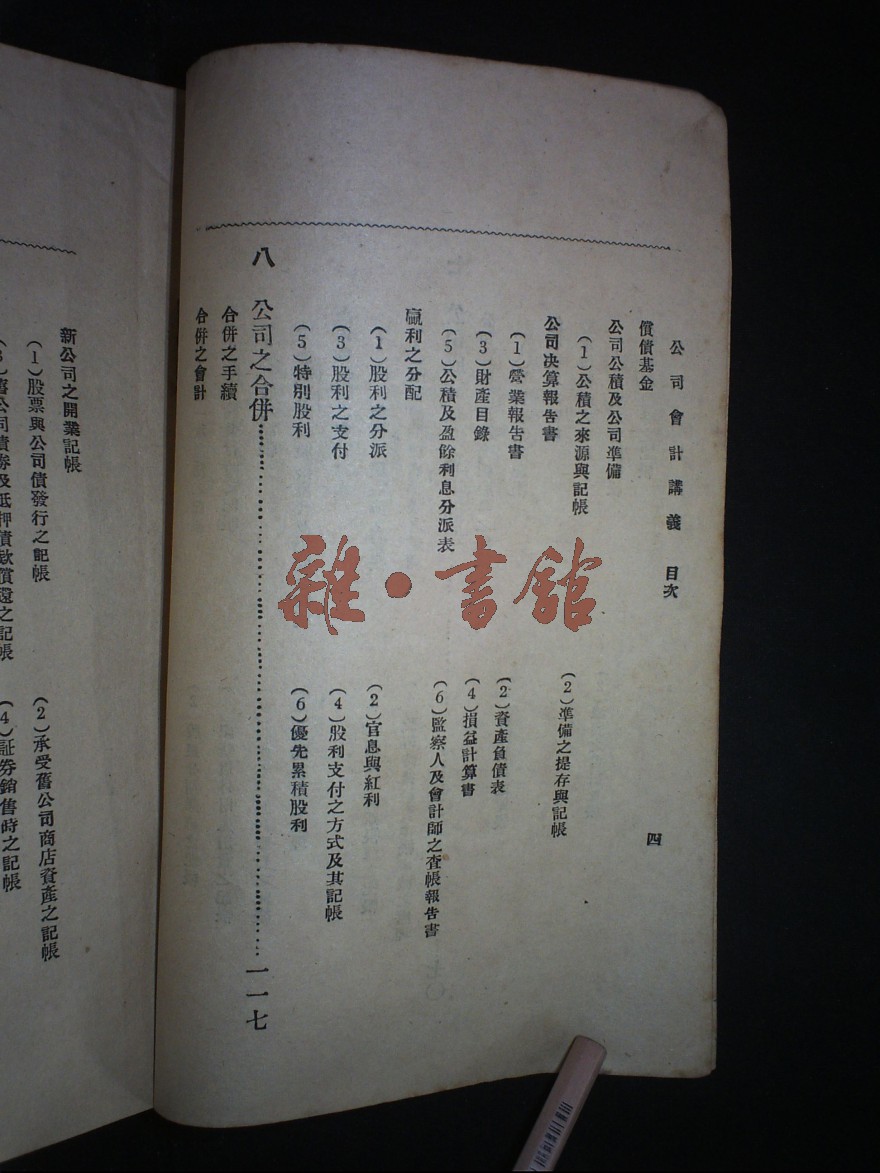 公司會計講義 目次
四
償債基金
公司公積及公司準備
(1)公積之來源與記帳
(2)準備之提存與記帳
公司決算報告書
(1)營業報告書
(2)資產負債表
(3)財產目錄
(4)損益計算書
(5)公積及盈餘利息分派表
(6)監察人及會計師之查帳報告書
贏利之分配
(1)股利之分派
(2)官息與紅利
(3)股利之支付
(4)股利支付之方式及其記帳
(5)特別股利
(6)優先累積股利
八 公司之合併 一一七
合併之手續
合併之會計
新公司之開業記帳
(1)股票與公司債發行之記帳
(2)承受舊公司商店資產之記帳
(3)舊公司債券及抵押債款償還之記帳
(4)証券銷售時之記帳
雜·書館